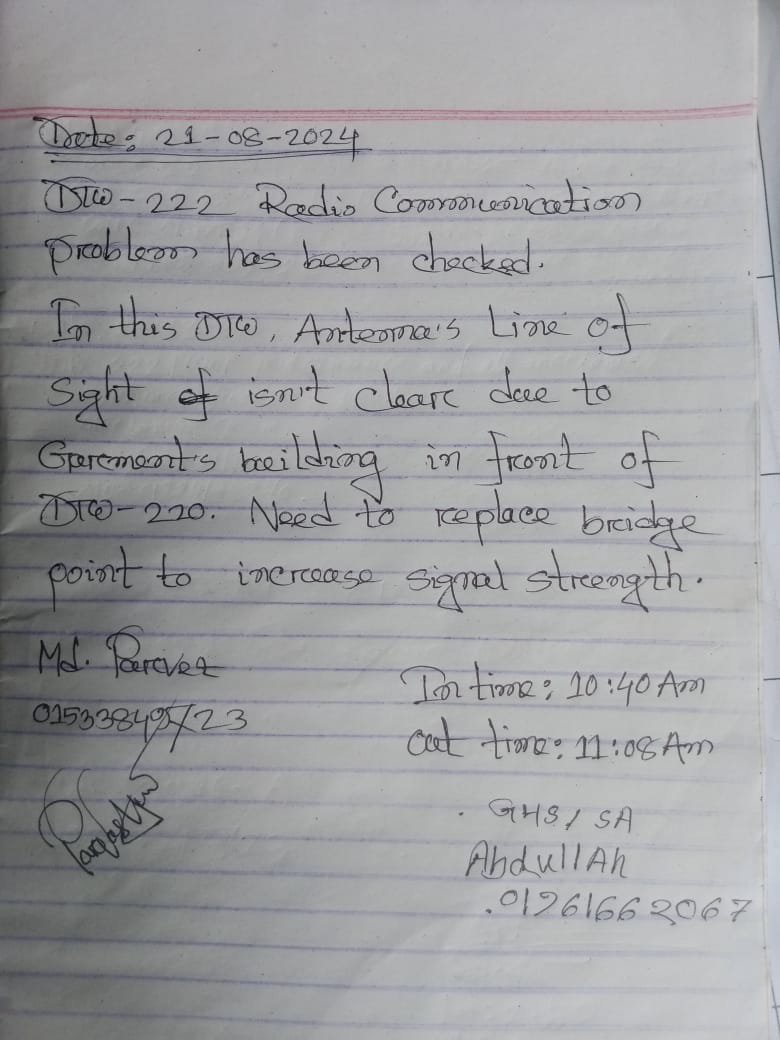 Date: 21-08-2024
DTW-222 Radio Communication
problem has been checked.
In this DTW, Antenna's Line of
Sight of isn't clear due to
Garment's building in front of
DTW-220. Need to replace bridge
point to increase signal strength.
Md. Parvez
In time: 10:40 Am
Out time: 11:08 Am
GHS/SA
AbdullAh